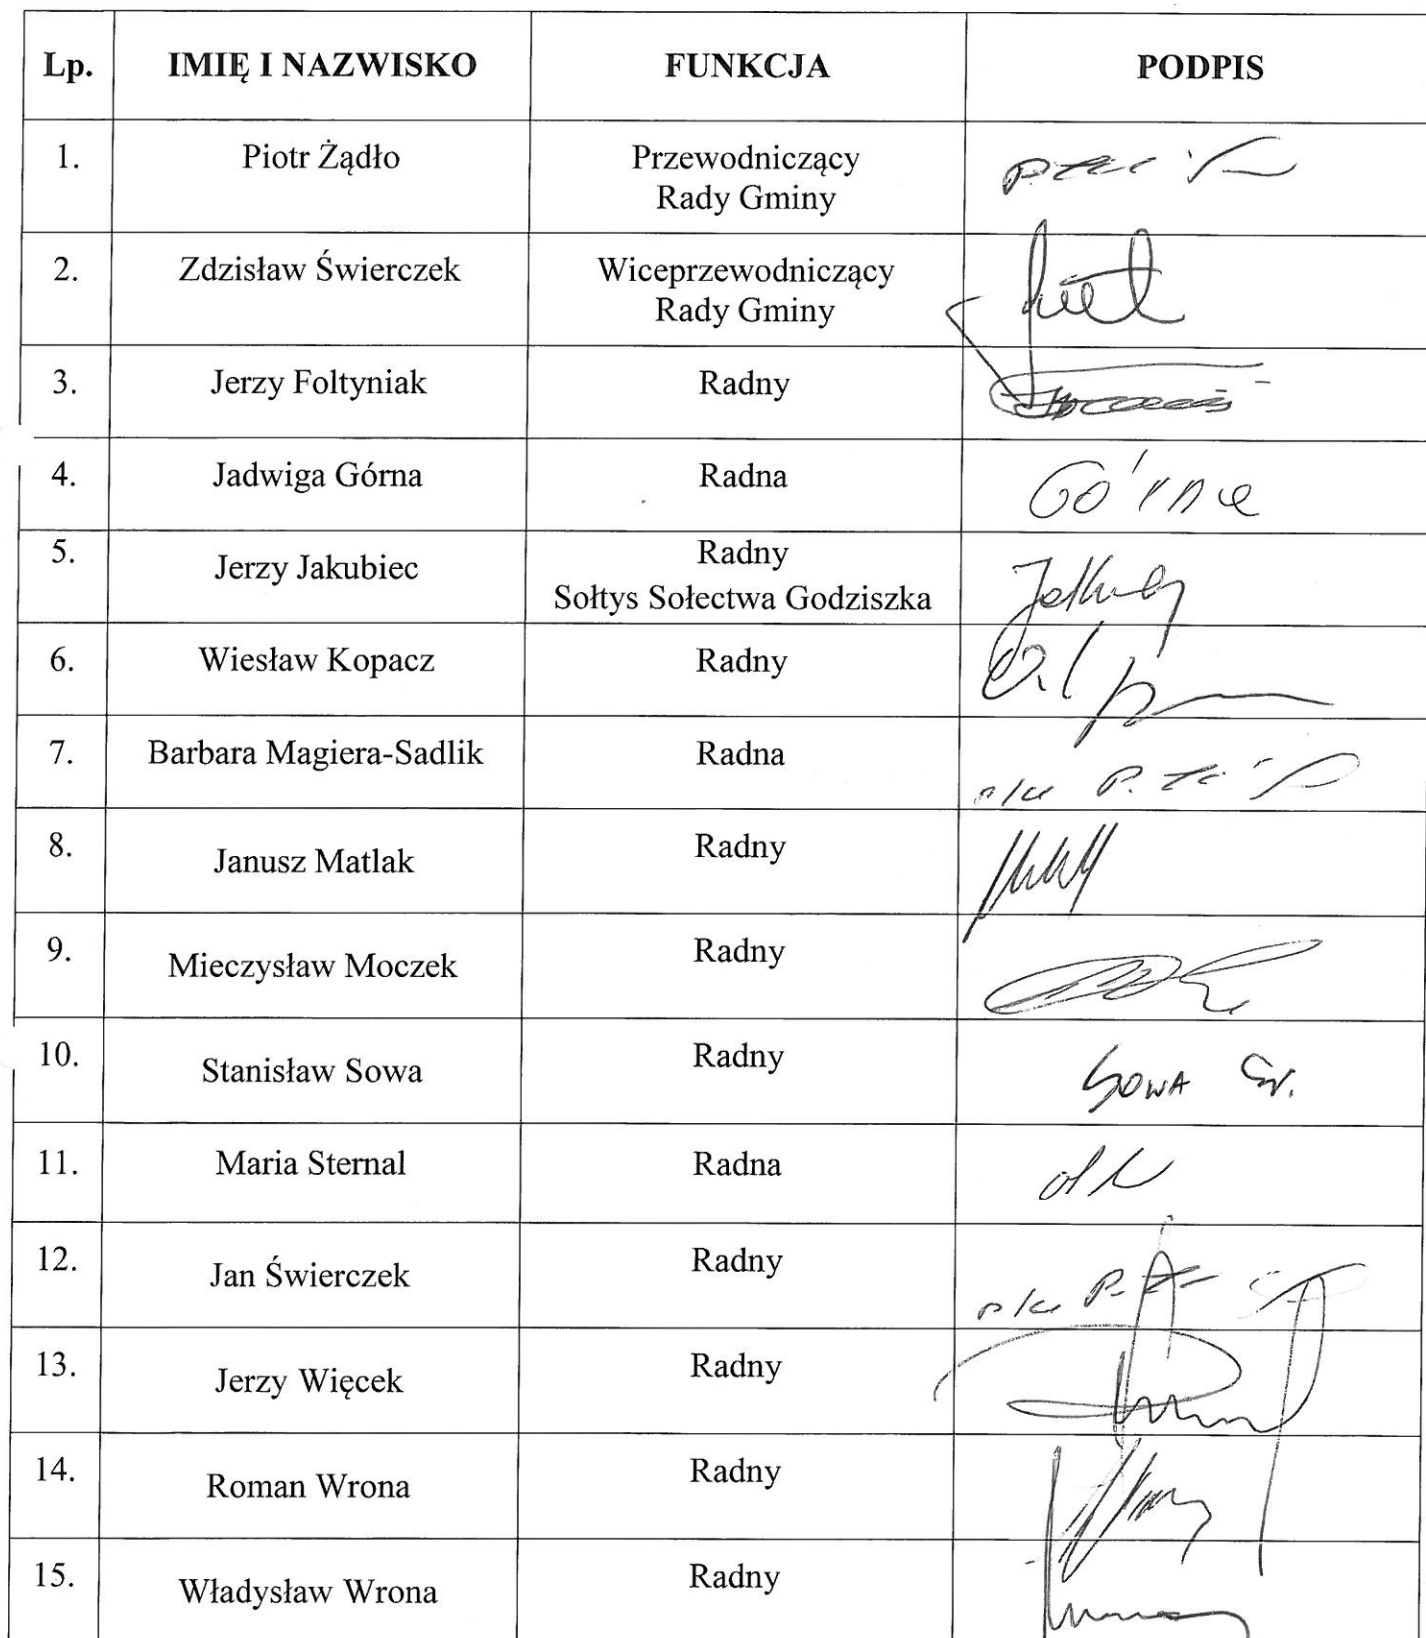 Lp. IMIĘ I NAZWISKO FUNKCJA PODPIS
1. Piotr Żądło Przewodniczący
Rady Gminy
2. Zdzisław Świerczek Wiceprzewodniczący
Rady Gminy
3. Jerzy Foltyniak Radny
4. Jadwiga Górna Radna Górna
5. Jerzy Jakubiec Radny
Sołtys Sołectwa Godziszka
6. Wiesław Kopacz Radny
7. Barbara Magiera-Sadlik Radna
8. Janusz Matlak Radny
9. Mieczysław Moczek Radny
10. Stanisław Sowa Radny SOWA St.
11. Maria Sternal Radna
12. Jan Świerczek Radny
13. Jerzy Więcek Radny
14. Roman Wrona Radny
15. Władysław Wrona Radny